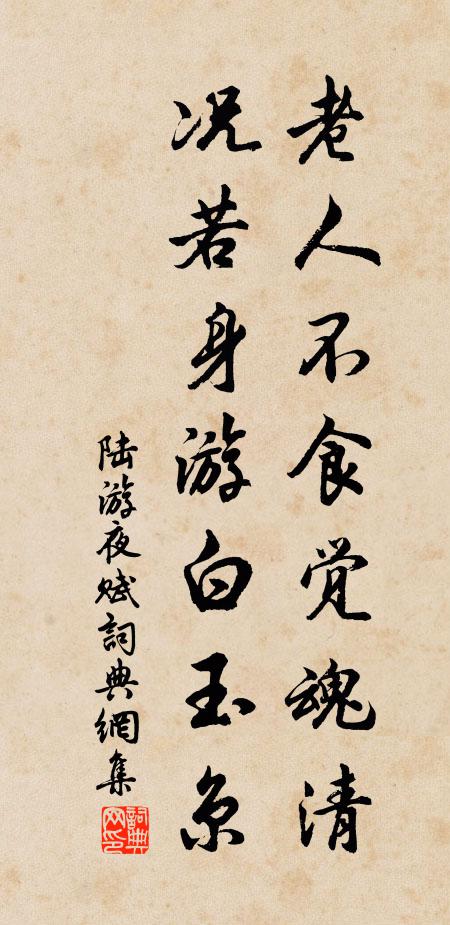 老人不食觉魂清
况若身游白玉京
陆游夜赋詞典網集
詞典网印